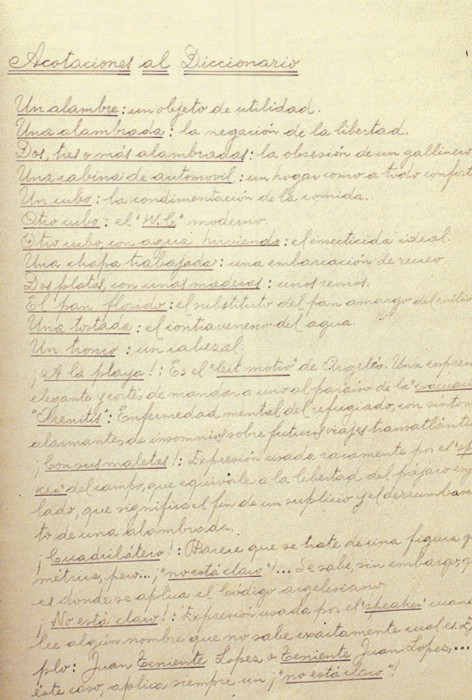 Acotaciones al Diccionario
Un alambre: un objeto de utilidad.
Una alambrada: la negación de la libertad.
Dos, tres o más alambradas: la obsesión de un gallinero
Una cabina de automovil: un hogar como a todo confort
Un cubo: la condimentación de la comida.
Otro cubo: el "W.C." moderno.
Otro cubo, con agua hirviendo: el insecticida ideal.
Una chapa trabajada: una embarcación de recreo.
Dos platos, con unas maderas: unos remos.
El pan florido: el substituto del pan amargo del
Una tostada: el contraveneno del agua.
Un tronco: un cabezal.
¡A la playa!: Es el "leit motiv" de Argelés. Una
elegante y cortés de mandar a uno al paraíso de la "evacuac
Enfermedad mental del refugiado, con sínto
alarmantes de insomnio, sobre futuros viajes transatlánti
¡Con sus maletas!: Expresión usada raramente por el "spe
ker" del campo, que equivale a la libertad del pájaro enja
lado, que significa el fin de un suplicio y el derrumba
to de una alambrada.
¡Cuadrilátero!: Parece que se trate de una figura g
métrica, pero... ¡"no está claro"!... Se sabe, sin embargo, q
es donde se aplica el Código argelesiano.
¡No está claro!: Expresión usada por el "speaker" cuan
lee algún nombre que no sabe exactamente cual es. E
plo: Juan Teniente Lopez o Teniente Juan Lopez...
este caso, aplica siempre un ¡"no está claro"!